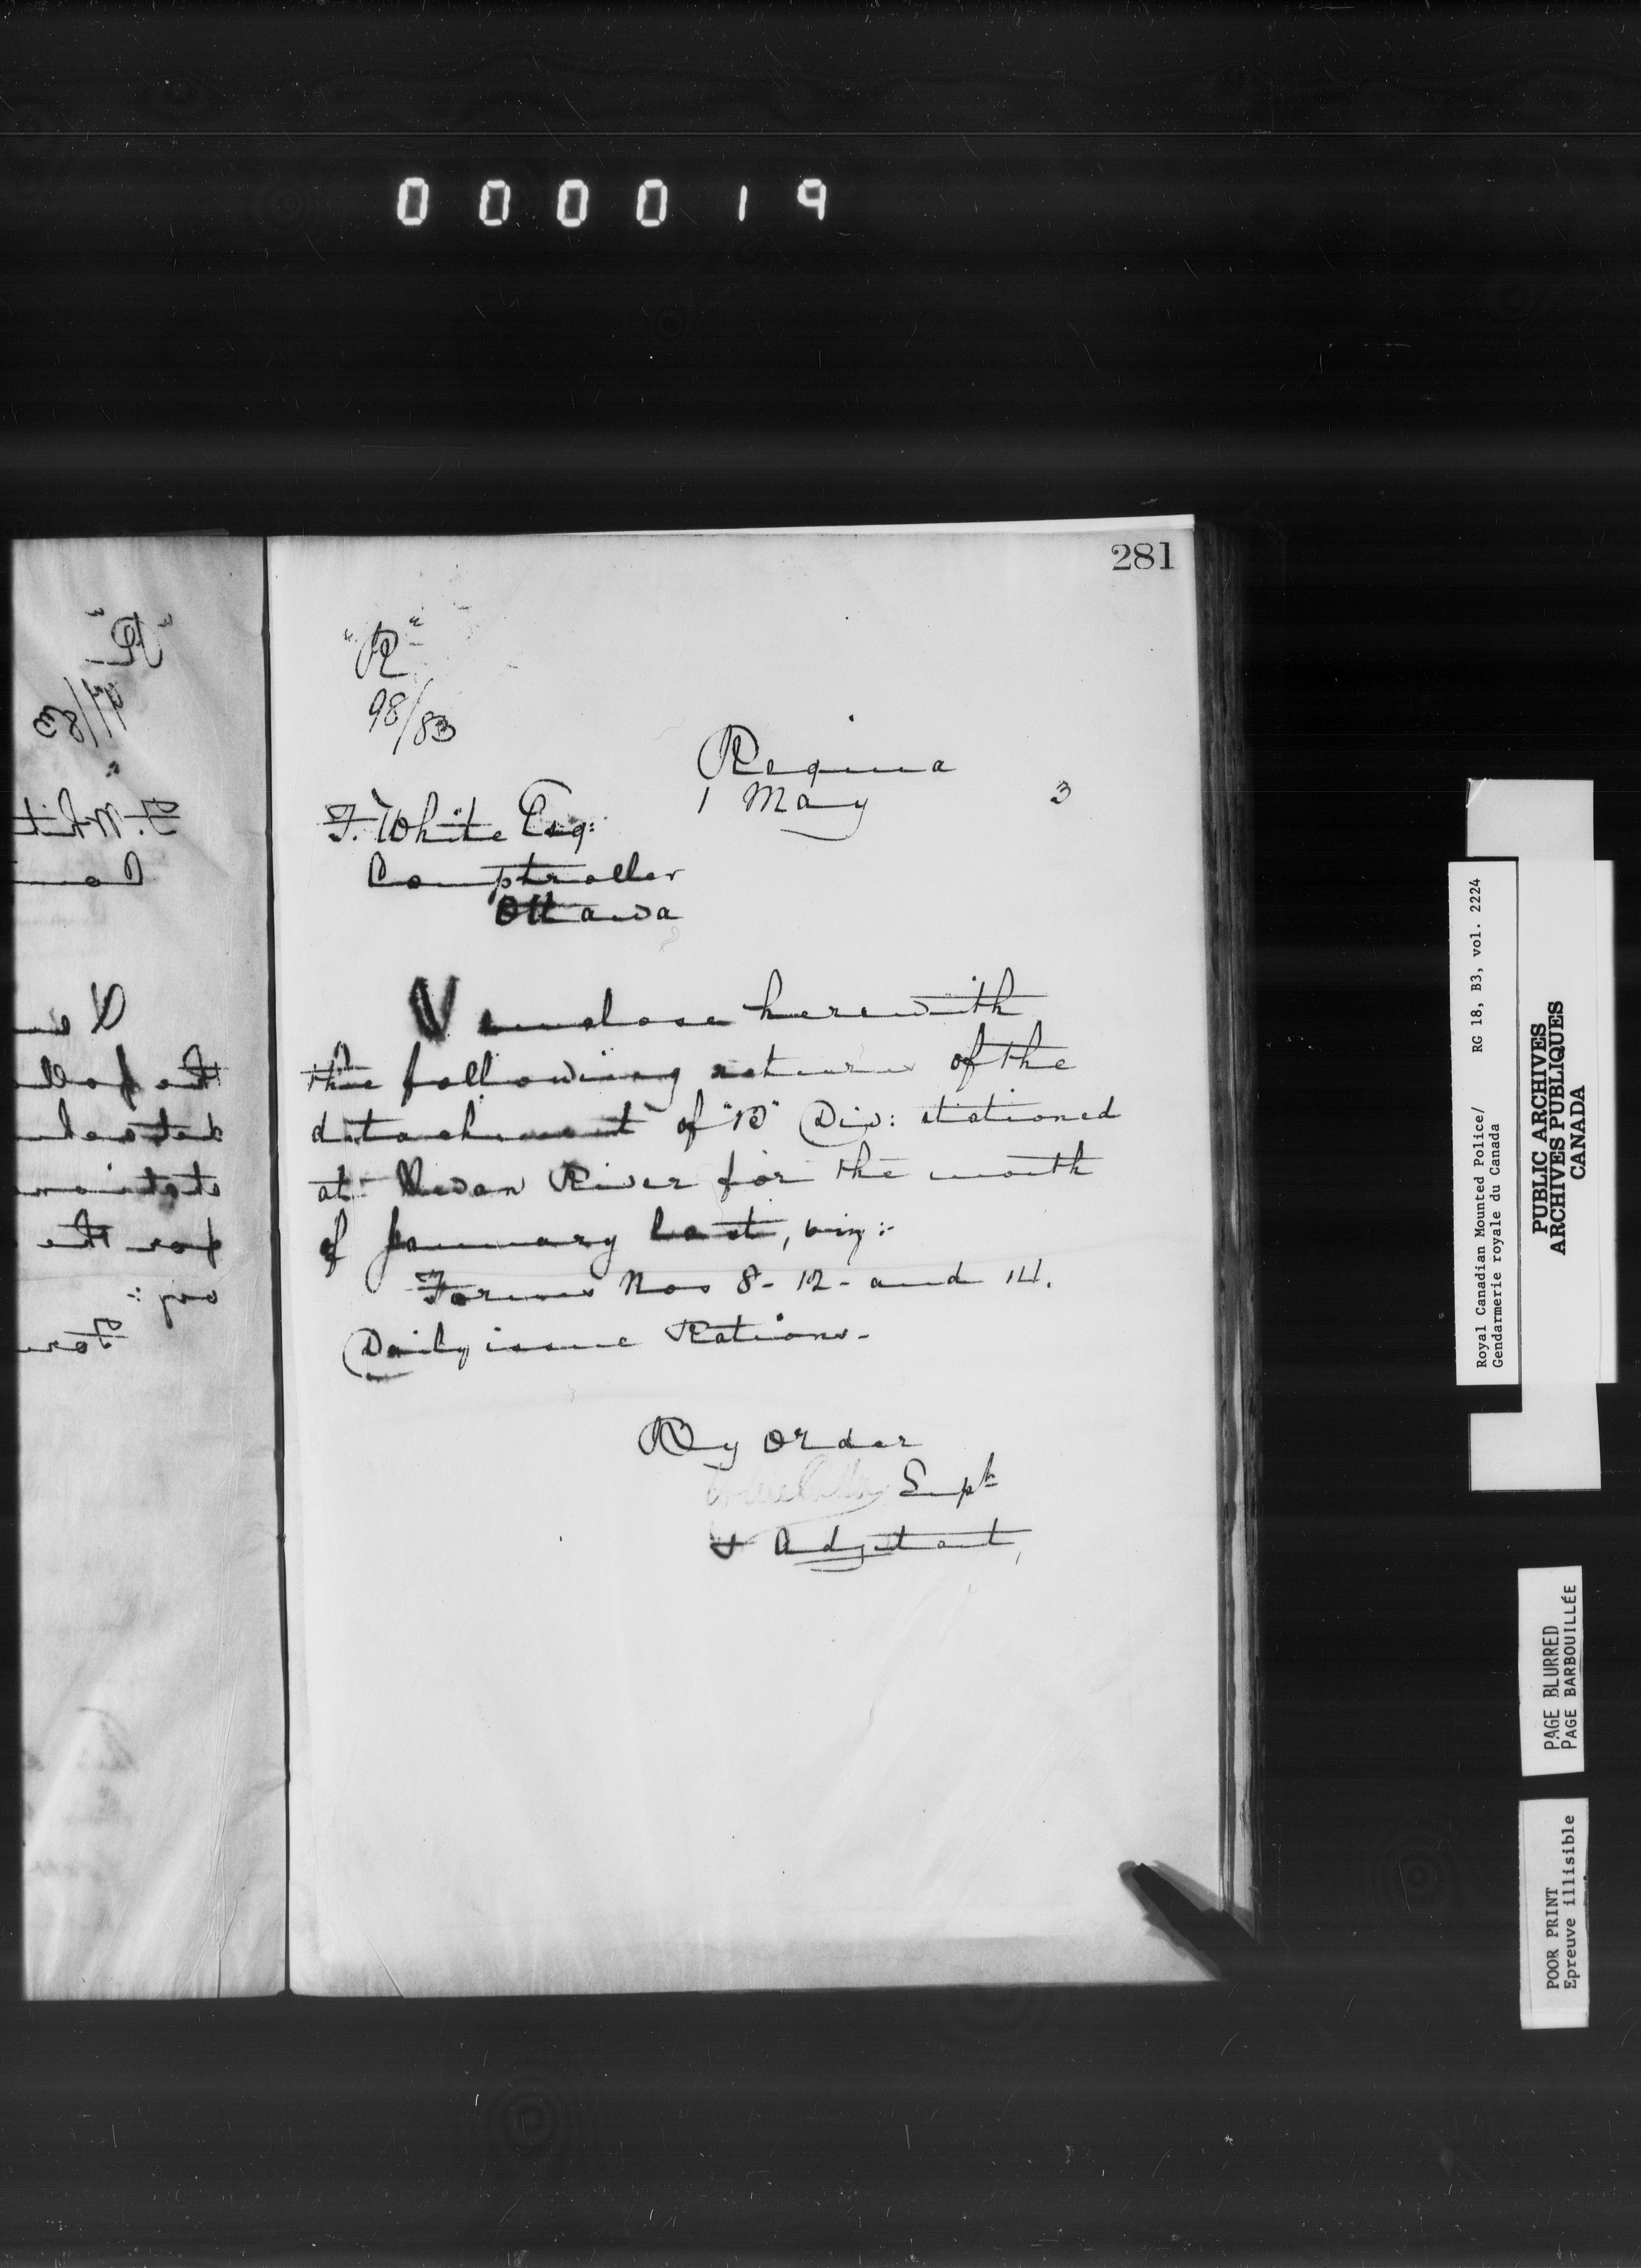 000019
281
"R"
98/83
Regina
1 May 3
F. White Esq:
Comptroller
Ottawa
I enclose herewith
the following returns of the
detachment of "B" Div: stationed
at Swan River for the month
of January last, viz:-
Forms Nos 8 - 12 - and 14.
Daily issue Rations -
By order
Supt
& Adjutant,
"R"
/83
F. Whit
Com
the foll
detachm
station
for the
viz:
For
Royal Canadian Mounted Police/ RG 18, B3, vol. 2224
Gendarmerie royale du Canada
PUBLIC ARCHIVES
ARCHIVES PUBLIQUES
CANADA
PAGE BLURRED
PAGE BARBOUILLÉE
POOR PRINT
Epreuve illisible